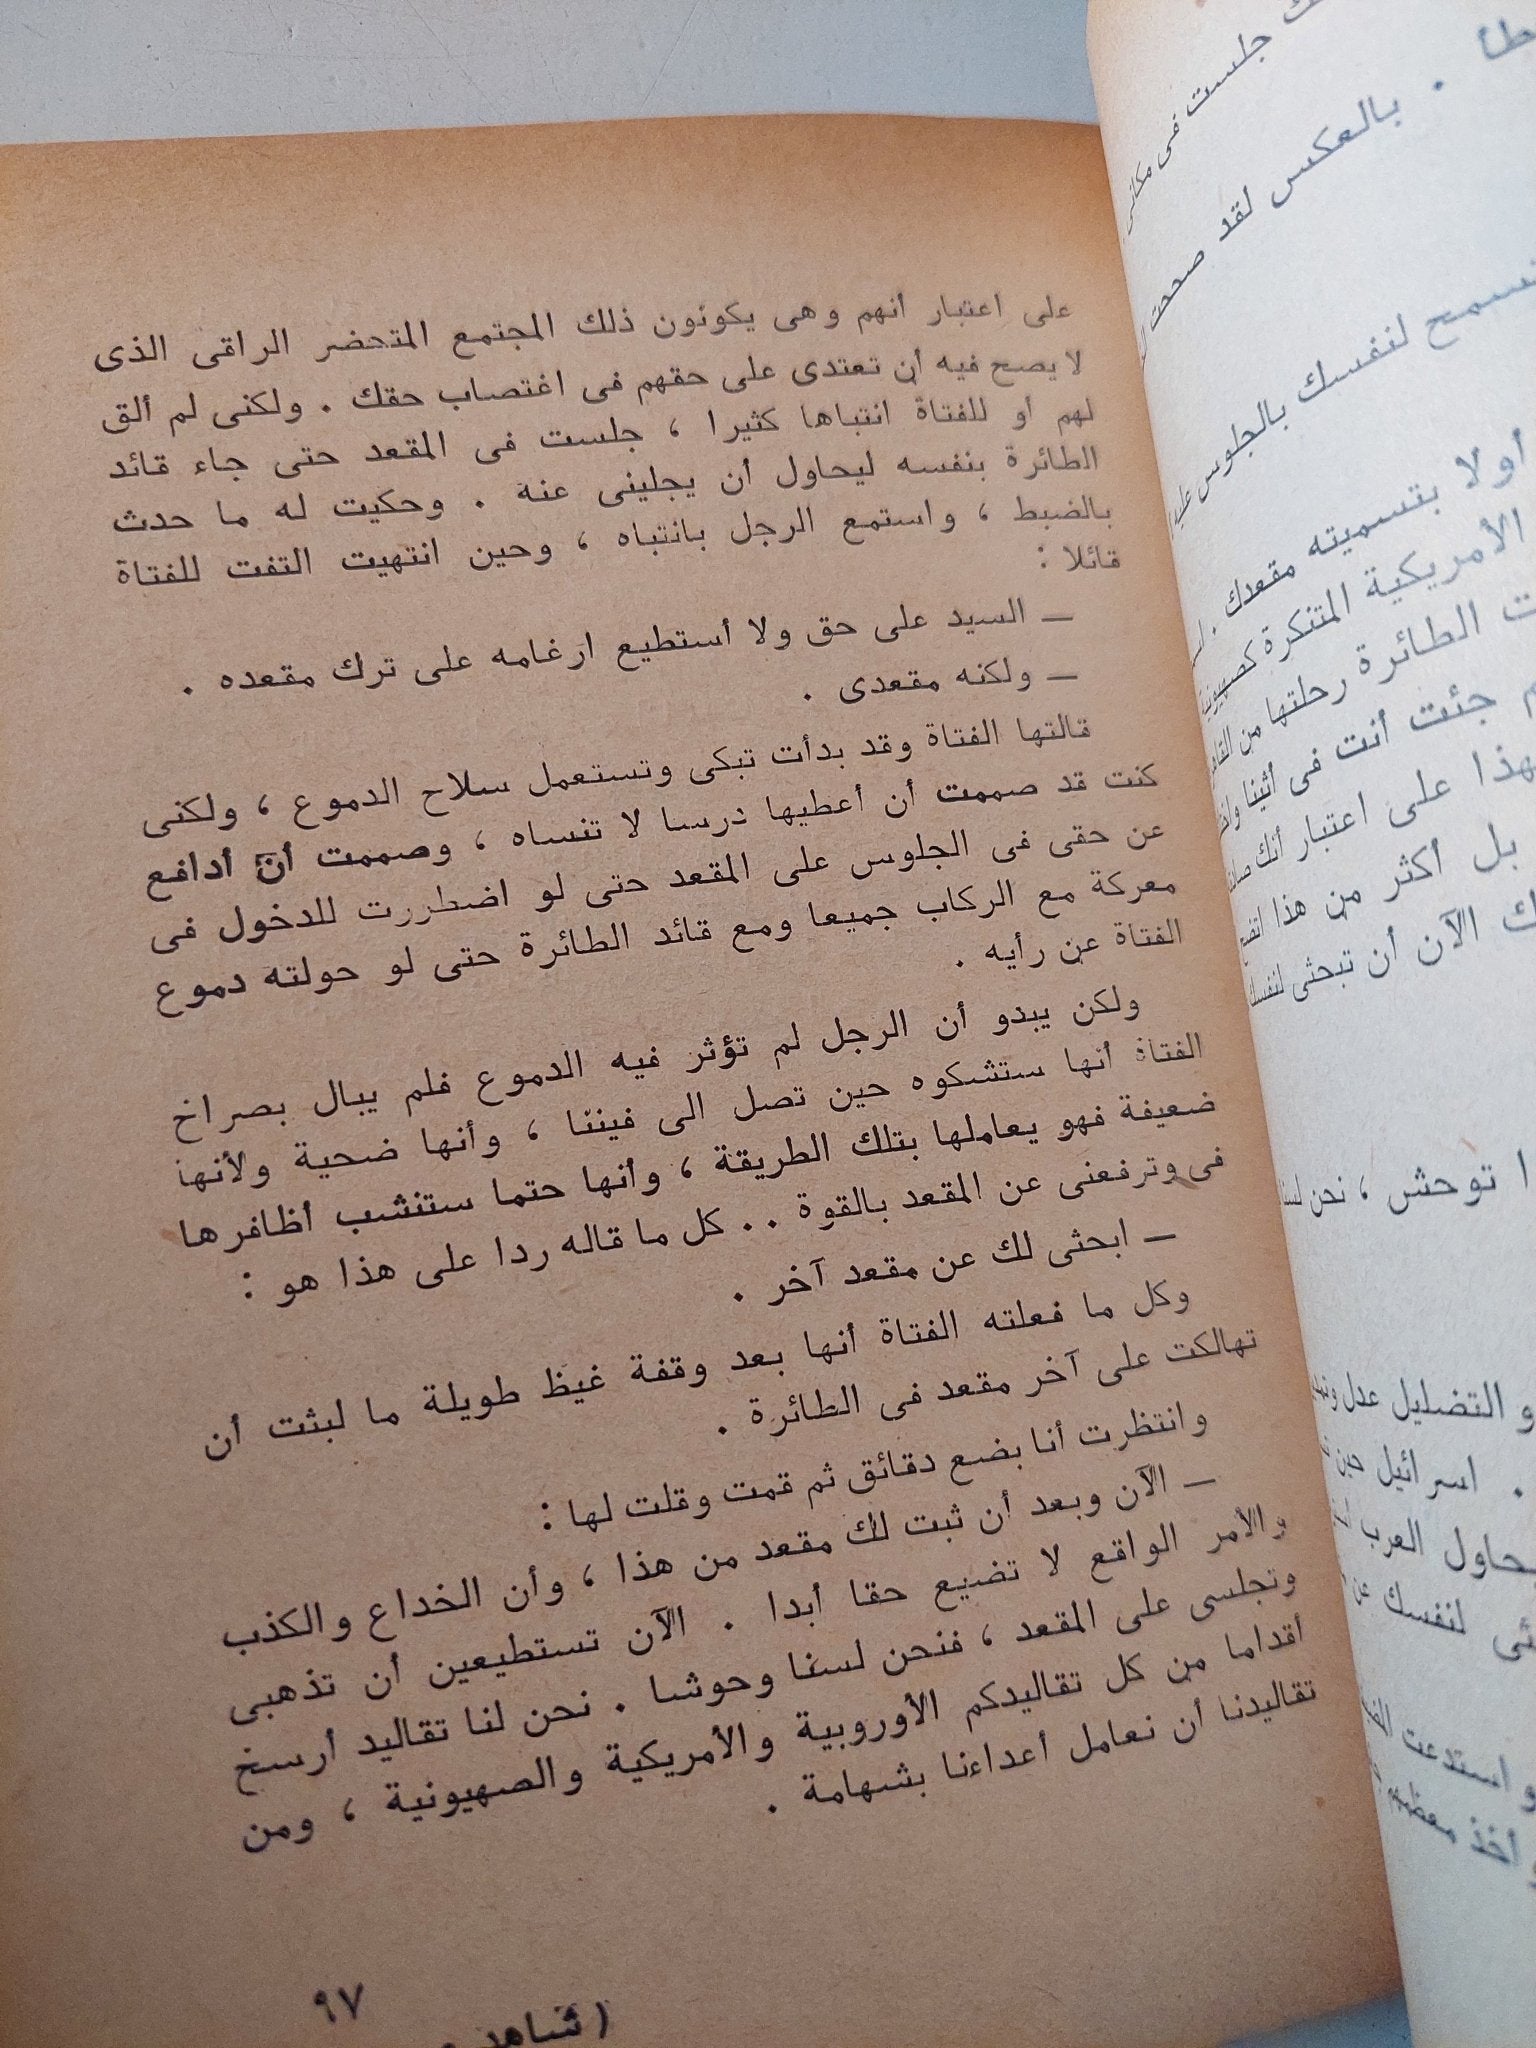 جلست فى مكانى
. بالعكس لقد صححت
لنفسك بالجلوس
أولا بتسميته مقعدك .
الأمريكية المتنكرة
الطائرة رحلتها من
جئت أنت فى أثينا
على اعتبار أنك
بل أكثر من هذا
الآن أن تبحثى لنفسك
توحش ، نحن لسنا
التضليل عدل
. اسرائيل حين
العرب
لنفسك عن
استدعت
أخذ معظمهم
على اعتبار أنهم وهى يكونون ذلك المجتمع المتحضر الراقى الذى
لا يصح فيه أن تعتدى على حقهم فى اغتصاب حقك . ولكنى لم ألق
لهم أو للفتاة انتباها كثيرا ، جلست فى المقعد حتى جاء قائد
الطائرة بنفسه ليحاول أن يجلينى عنه . وحكيت له ما حدث
بالضبط ، واستمع الرجل بانتباه ، وحين انتهيت التفت للفتاة
قائلا :
— السيد على حق ولا أستطيع ارغامه على ترك مقعده .
— ولكنه مقعدى .
قالتها الفتاة وقد بدأت تبكى وتستعمل سلاح الدموع ، ولكنى
كنت قد صممت أن أعطيها درسا لا تنساه ، وصممت أن أدافع
عن حقى فى الجلوس على المقعد حتى لو اضطررت للدخول فى
معركة مع الركاب جميعا ومع قائد الطائرة حتى لو حولته دموع
الفتاة عن رأيه .
ولكن يبدو أن الرجل لم تؤثر فيه الدموع فلم يبال بصراخ
الفتاة أنها ستشكوه حين تصل الى فيننا ، وأنها ضحية ولأنها
ضعيفة فهو يعاملها بتلك الطريقة ، وأنها حتما ستنشب أظافرها
فى وترفعنى عن المقعد بالقوة . . كل ما قاله ردا على هذا هو :
— ابحثى لك عن مقعد آخر .
وكل ما فعلته الفتاة أنها بعد وقفة غيظ طويلة ما لبثت أن
تهالكت على آخر مقعد فى الطائرة .
وانتظرت أنا بضع دقائق ثم قمت وقلت لها :
— الآن وبعد أن ثبت لك مقعد من هذا ، وأن الخداع والكذب
والأمر الواقع لا تضيع حقا أبدا . الآن تستطيعين أن تذهبى
وتجلسى على المقعد ، فنحن لسنا وحوشا . نحن لنا تقاليد أرسخ
أقداما من كل تقاليدكم الأوروبية والأمريكية والصهيونية ، ومن
تقاليدنا أن نعامل أعداءنا بشهامة .
٩٧
( شاهد